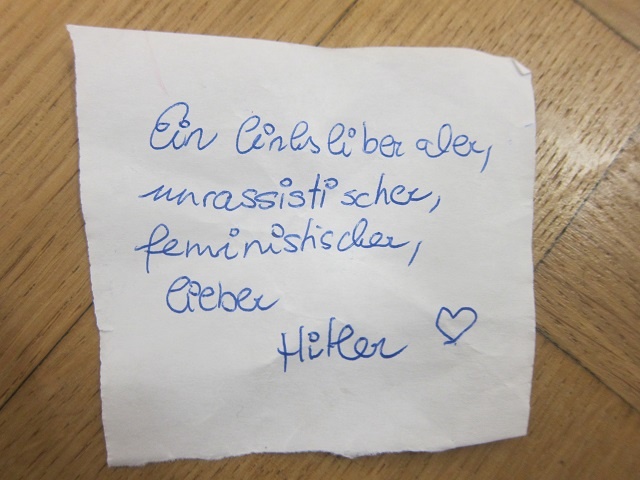 Ein linksliberaler,
unrassistischer,
feministischer,
lieber
Hitler ♡